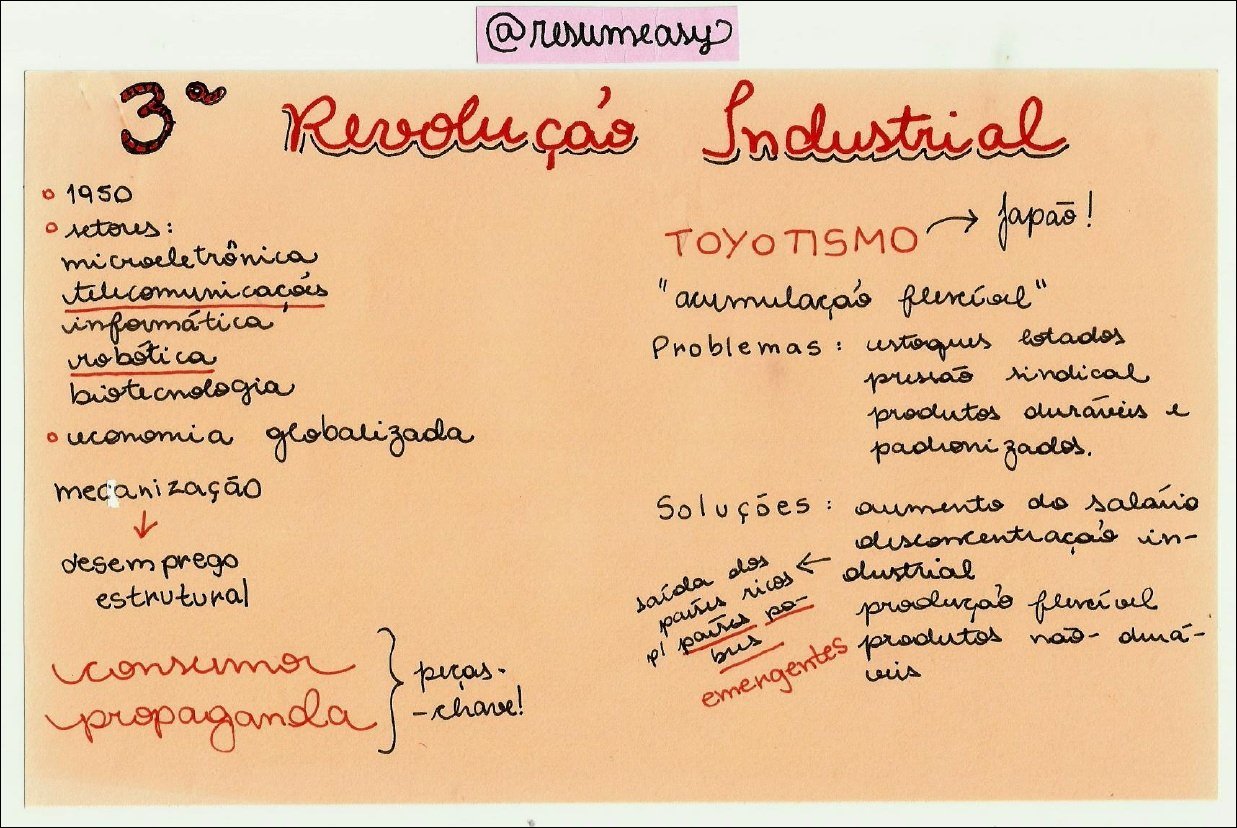 @resumeasy
3ª Revolução Industrial
1950
setores:
microeletrônica
telecomunicações
informática
robótica
biotecnologia
economia globalizada
mecanização
desemprego
estrutural
consumo
propaganda
peças-
-chave!
TOYOTISMO → Japão!
"acumulação flexível"
Problemas: estoques lotados
pressão sindical
produtos duráveis e
padronizados.
Soluções: aumento do salário
desconcentração in-
dustrial
produção flexível
produtos não-durá-
veis
saída dos
países ricos
p/ países po-
bres
emergentes